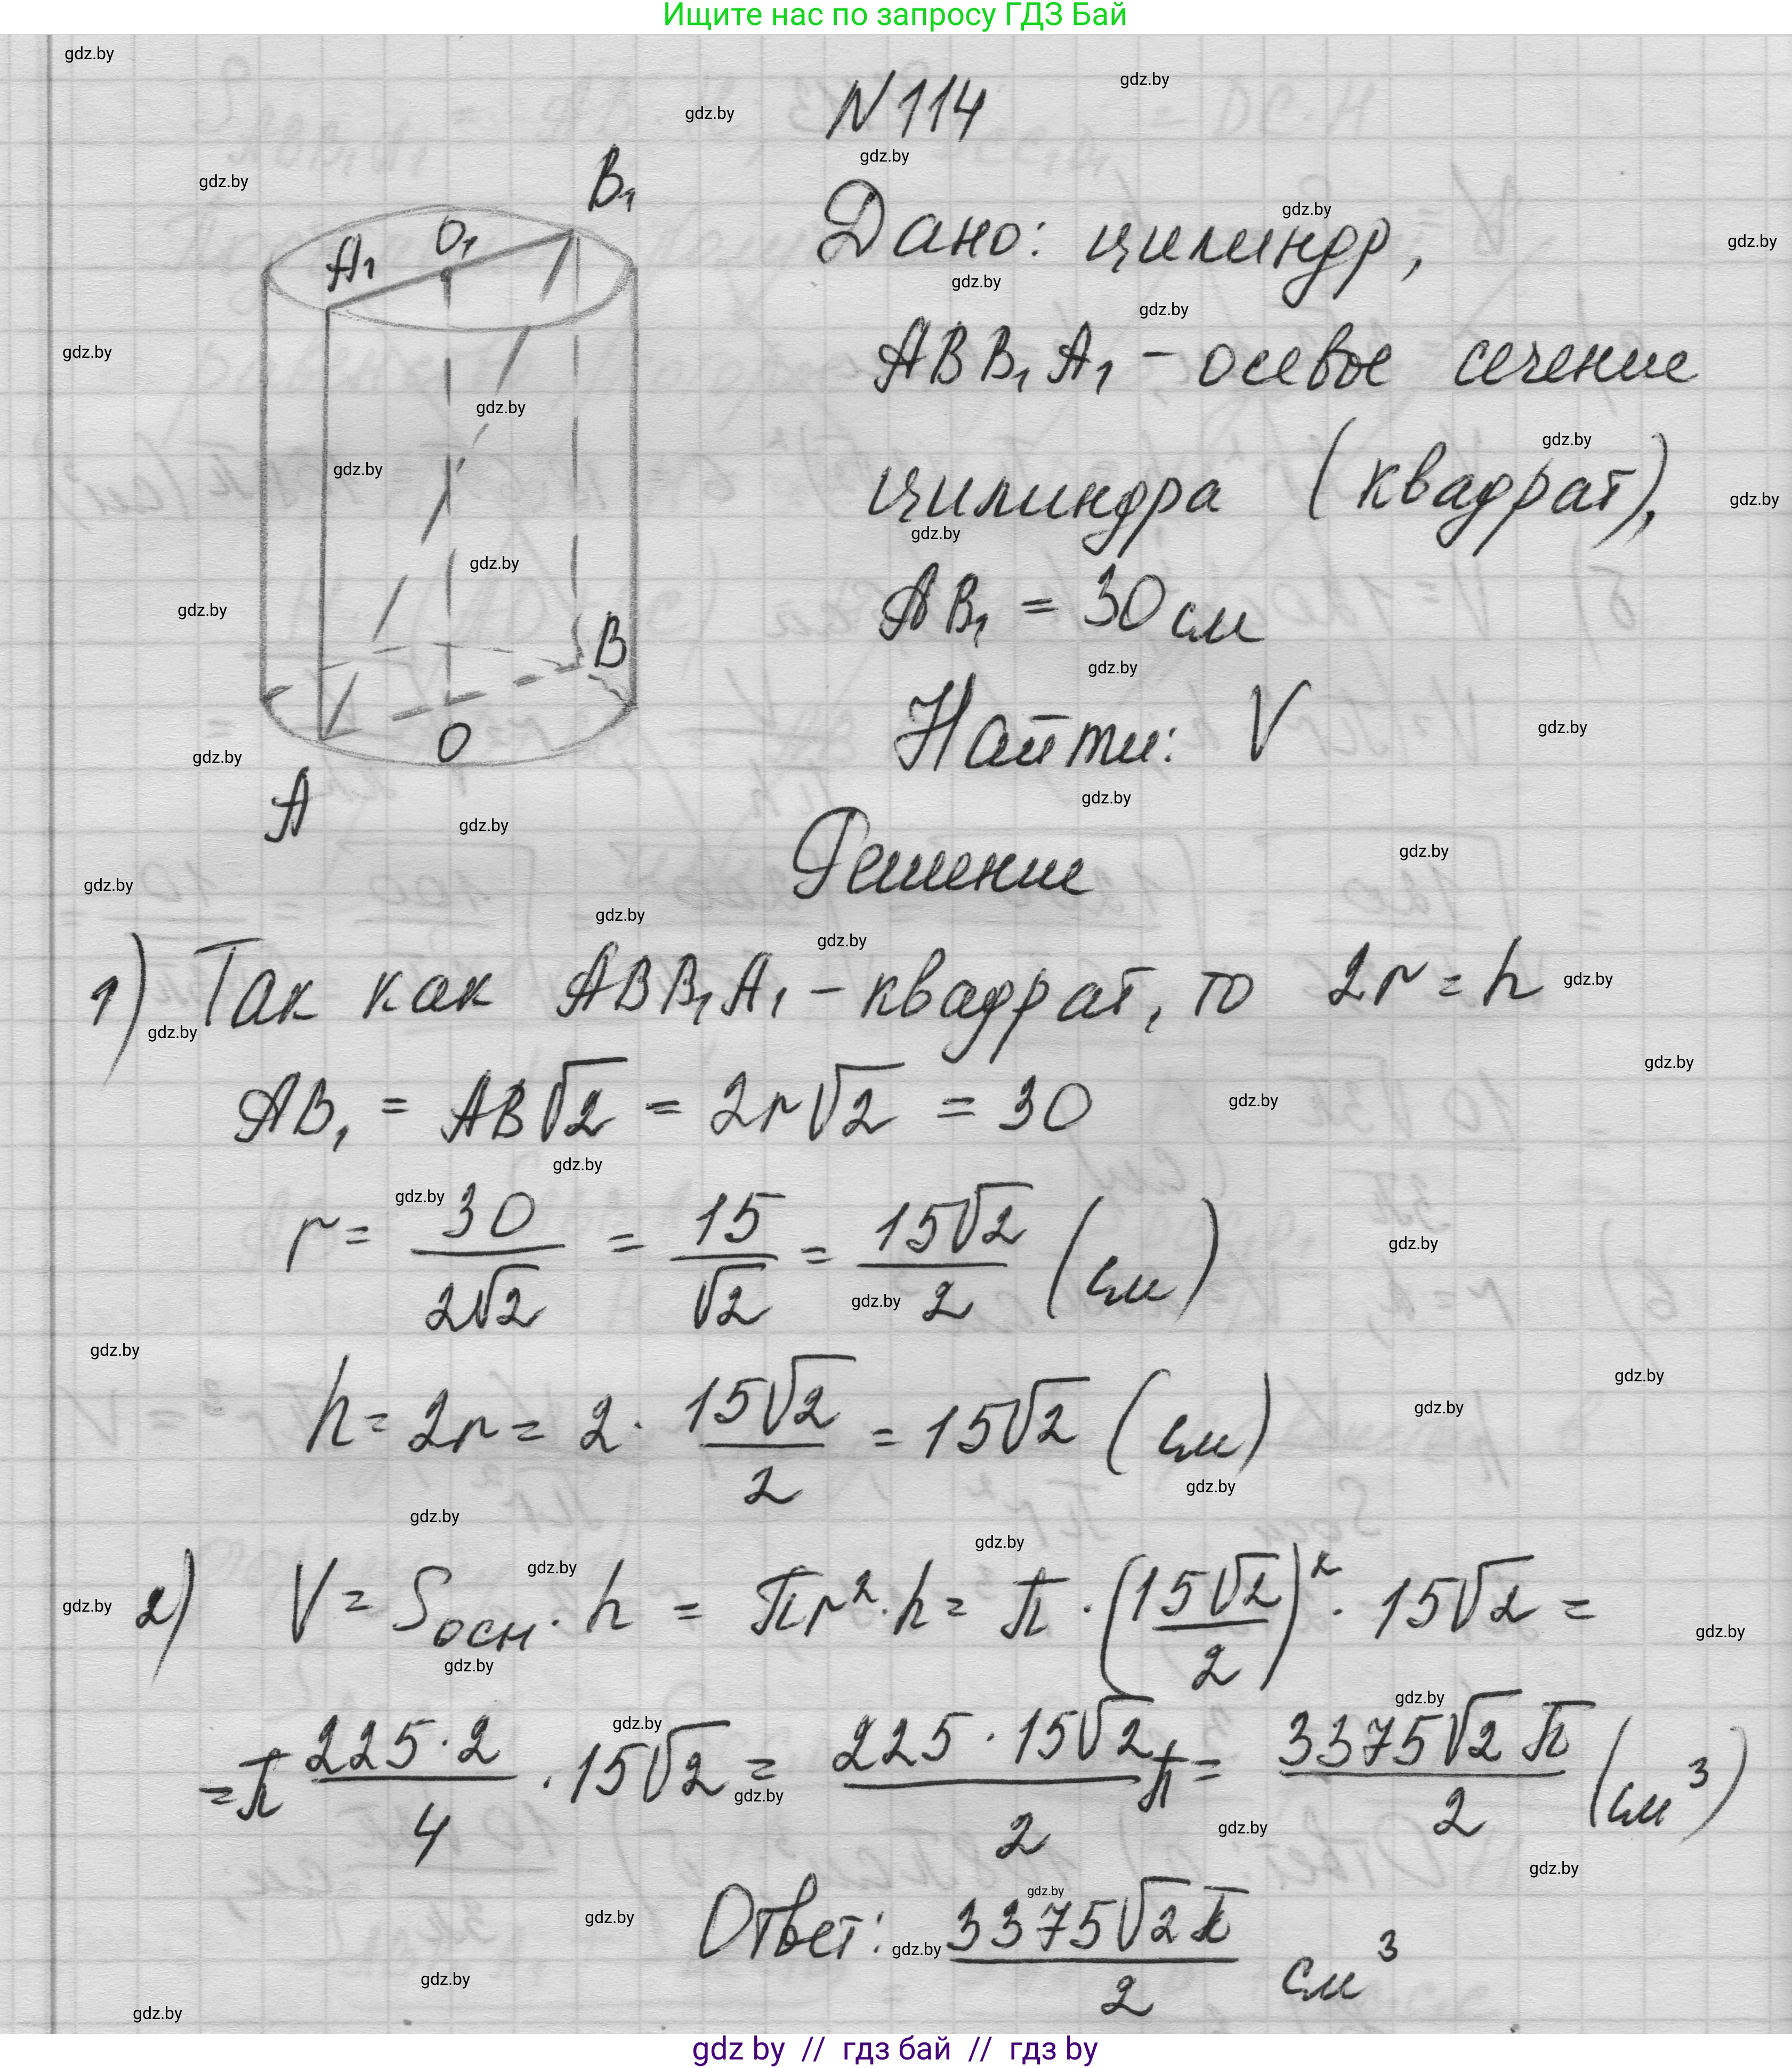 Ищите нас по запросу ГДЗ Бай
N 114
Дано: цилиндр,
ABB₁A₁ – осевое сечение
цилиндра (квадрат),
AB₁ = 30 см
Найти: V
B₁
O₁
A₁
B
O
A
Решение
1) Так как ABB₁A₁ – квадрат, то 2r = h
AB₁ = AB√2 = 2r√2 = 30
r = 30/(2√2) = 15/√2 = 15√2/2 (см)
h = 2r = 2 · 15√2/2 = 15√2 (см)
2) V = Sосн · h = πr² · h = π · (15√2/2)² · 15√2 =
= π 225·2/4 · 15√2 = 225·15√2/2 π = 3375√2 π/2 (см³)
Ответ: 3375√2 π/2 см³
gdz by // гдз бай // гдз by